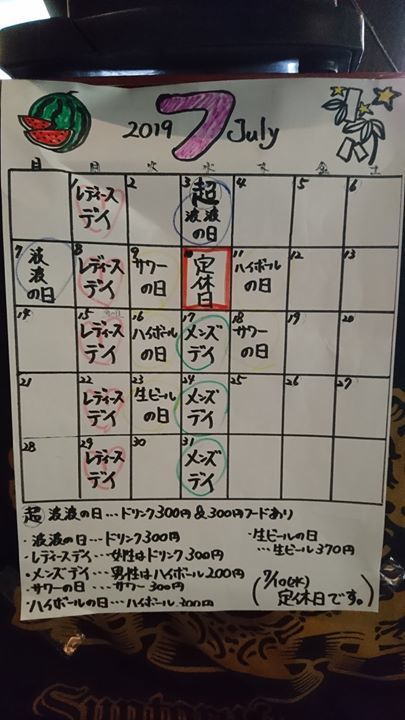 2019 7 July
日 月 火 水 木 金 土
1 2 3 4 5 6
レディース
デイ
超
波波
の日
7 8 9 10 11 12 13
波
波
の日
レディース
デイ
サワー
の日
定
休
日
ハイボール
の日
14 15 16 17 18 19 20
レディース
デイ
ハイボール
の日
メンズ
デイ
サワー
の日
21 22 23 24 25 26 27
レディース
デイ
生ビール
の日
メンズ
デイ
28 29 30 31
レディース
デイ
メンズ
デイ
超 波波の日…ドリンク300円&300円フードあり
・波波の日…ドリンク300円
・レディースデイ…女性はドリンク300円
・メンズデイ…男性はハイボール200円
・サワーの日…サワー300円
・ハイボールの日…ハイボール300円
・生ビールの日
…生ビール370円
(7/10(水)
定休日です。)
Suntory